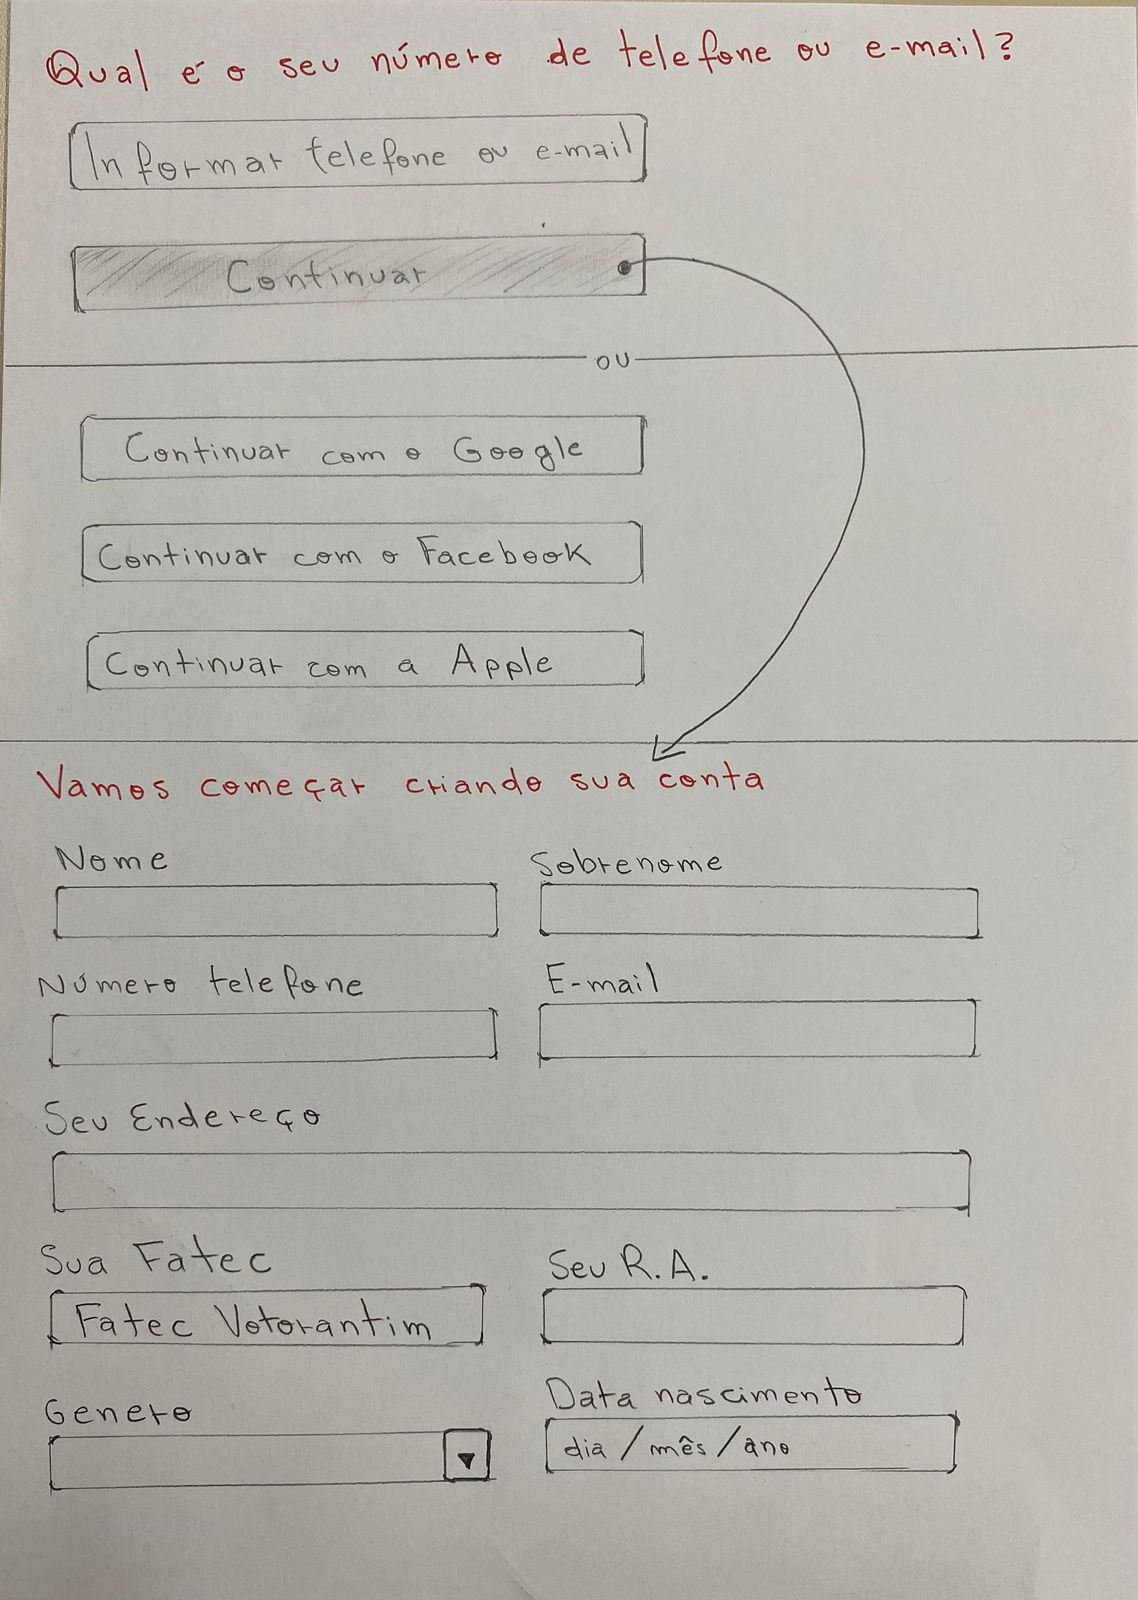 Qual é o seu número de telefone ou e-mail?
Informar telefone ou e-mail
Continuar
ou
Continuar com o Google
Continuar com o Facebook
Continuar com a Apple
Vamos começar criando sua conta
Nome Sobrenome
Número telefone E-mail
Seu Endereço
Sua Fatec Seu R.A.
Fatec Votorantim
Genero Data nascimento
dia / mês / ano